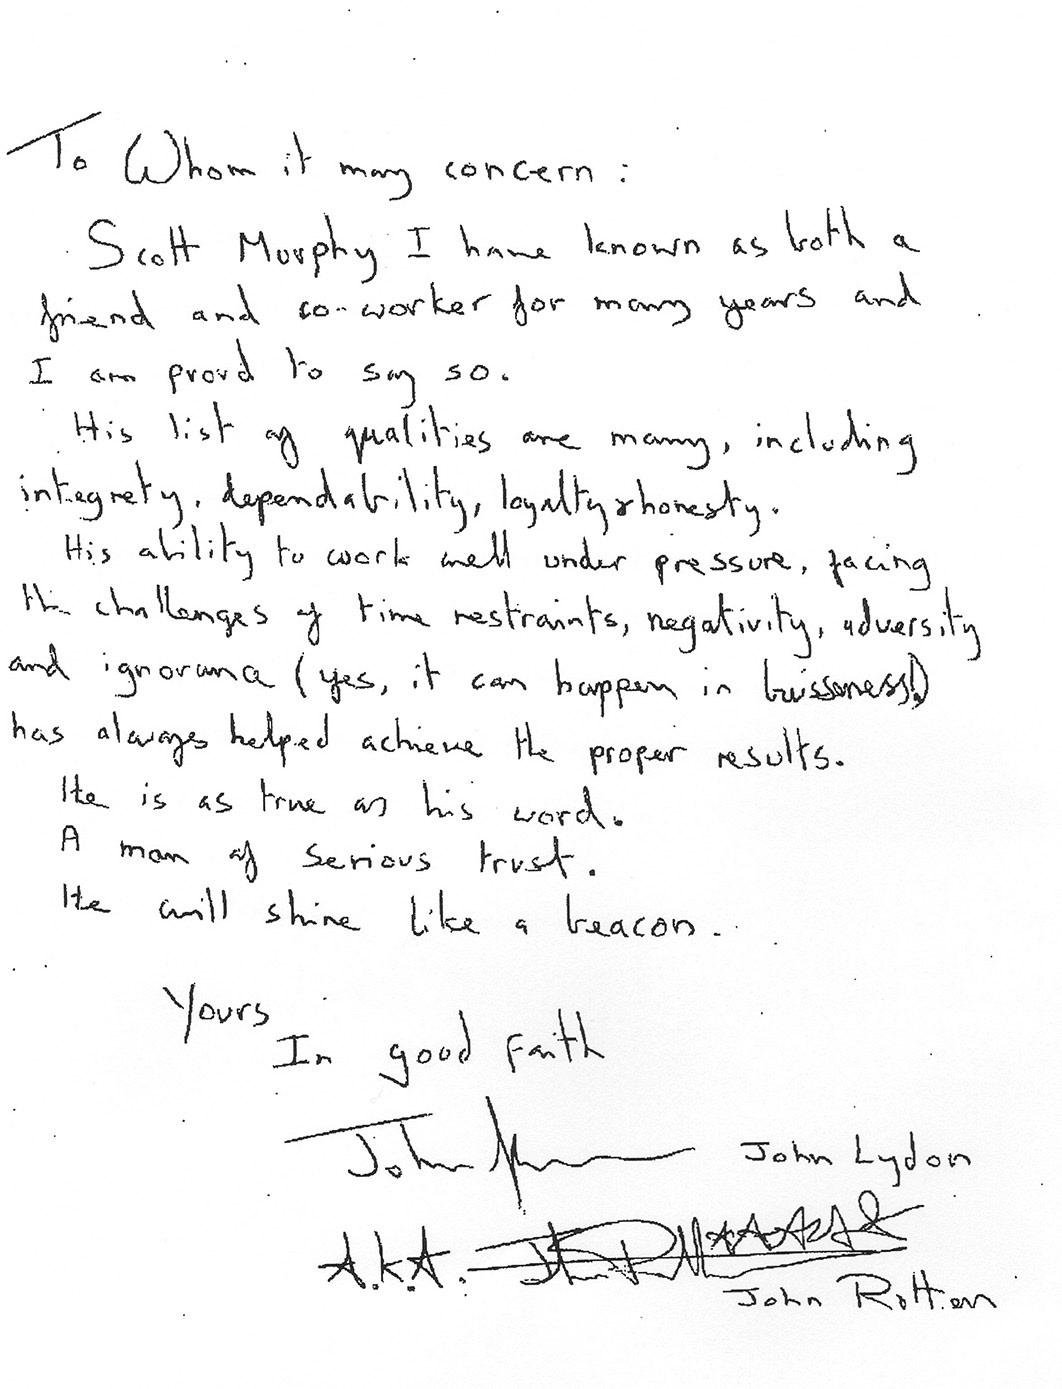 To Whom it may concern:
Scott Murphy I have known as both a
friend and co-worker for many years and
I am proud to say so.
His list of qualities are many, including
integrety, dependability, loyalty & honesty.
His ability to work well under pressure, facing
the challenges of time restraints, negativity, adversity
and ignorance (yes, it can happen in buisseness!)
has always helped achieve the proper results.
He is as true as his word.
A man of serious trust.
He will shine like a beacon.
Yours
In good faith
John John Lydon
A.K.A. John
John Rotten